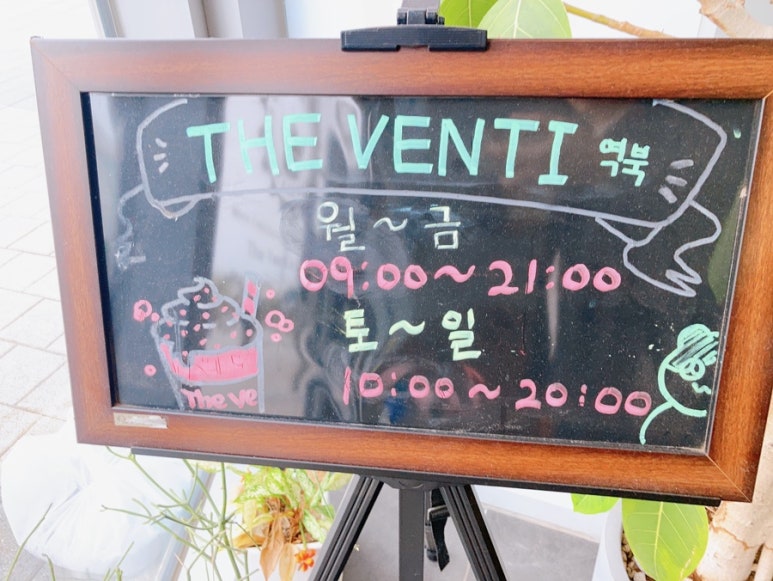 THE VENTI 역북
월 ~ 금
09:00 ~ 21:00
토 ~ 일
10:00 ~ 20:00
The Ve